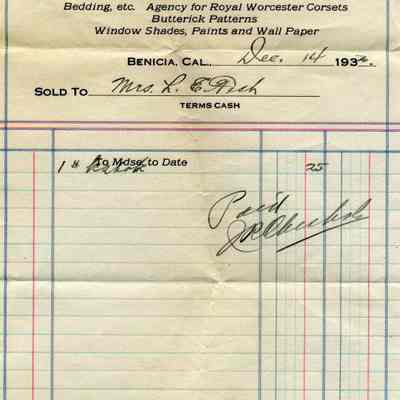 Bedding, etc. Agency for Royal Worcester Corsets
Butterick Patterns
Window Shades, Paints and Wall Paper
BENICIA, CAL., Dec. 14 193
SOLD TO Mrs. L. E.
TERMS CASH
To Mdse, to Date
1 # 25
Paid